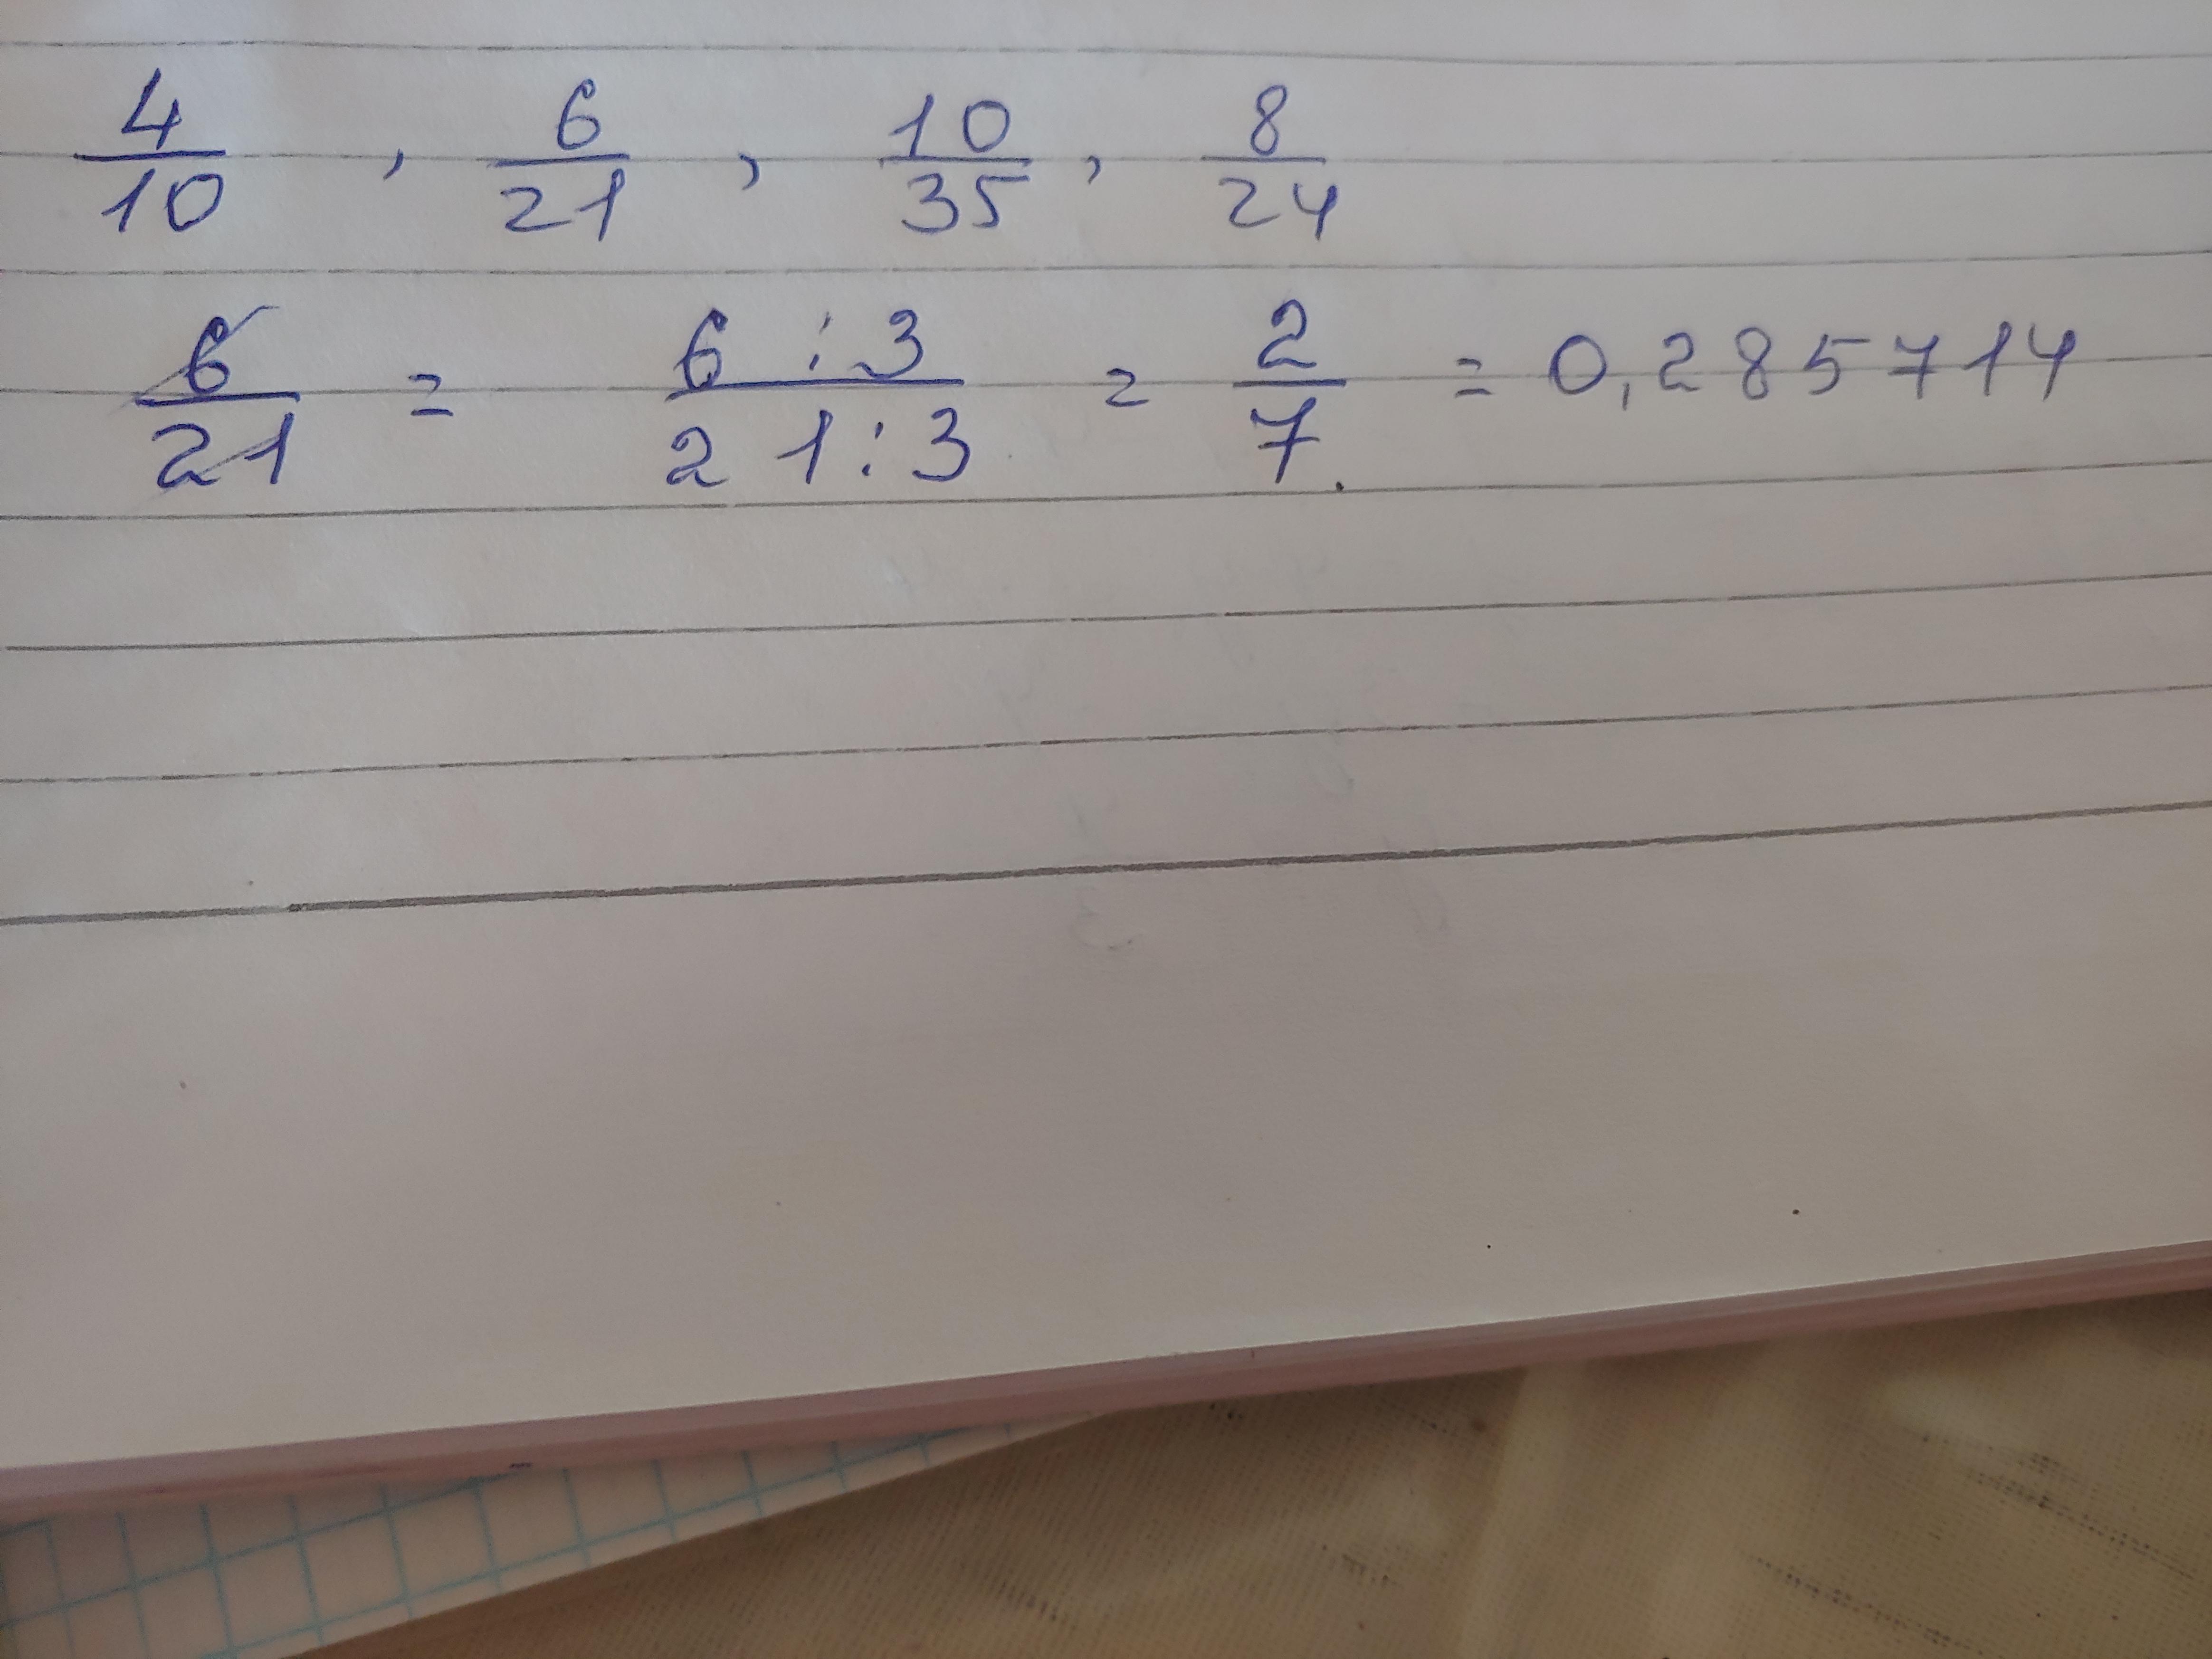 4/10 , 6/21 , 10/35 , 8/24
6/21 = 6:3/21:3 = 2/7 = 0,285714